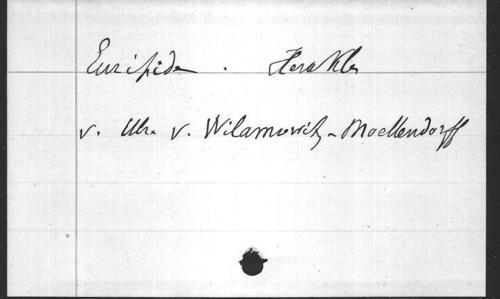 Euripides . Herakles
v. Ulr. v. Wilamowitz-Moellendorff